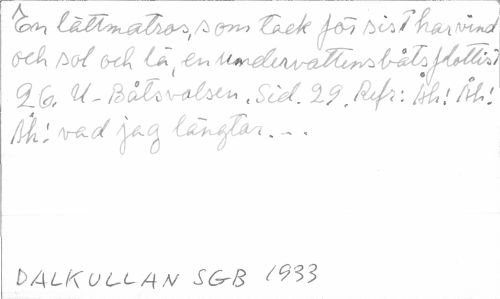 En lättmatros, som tack för sist har vind
och sol och lä, en undervattensbåtsflottist
26. U-Båtsvalsen. Sid. 29. Refr: Åh! Åh!
Åh! vad jag längtar. . .
DALKULLAN SGB 1933